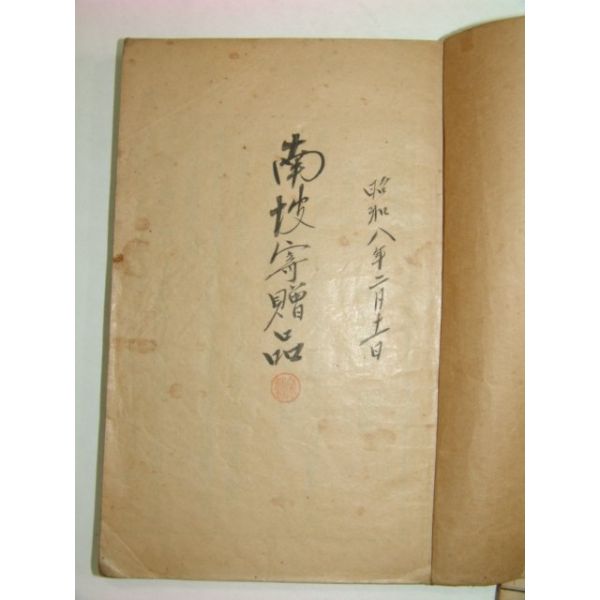 昭和八年二月十一日
南坡寄贈品